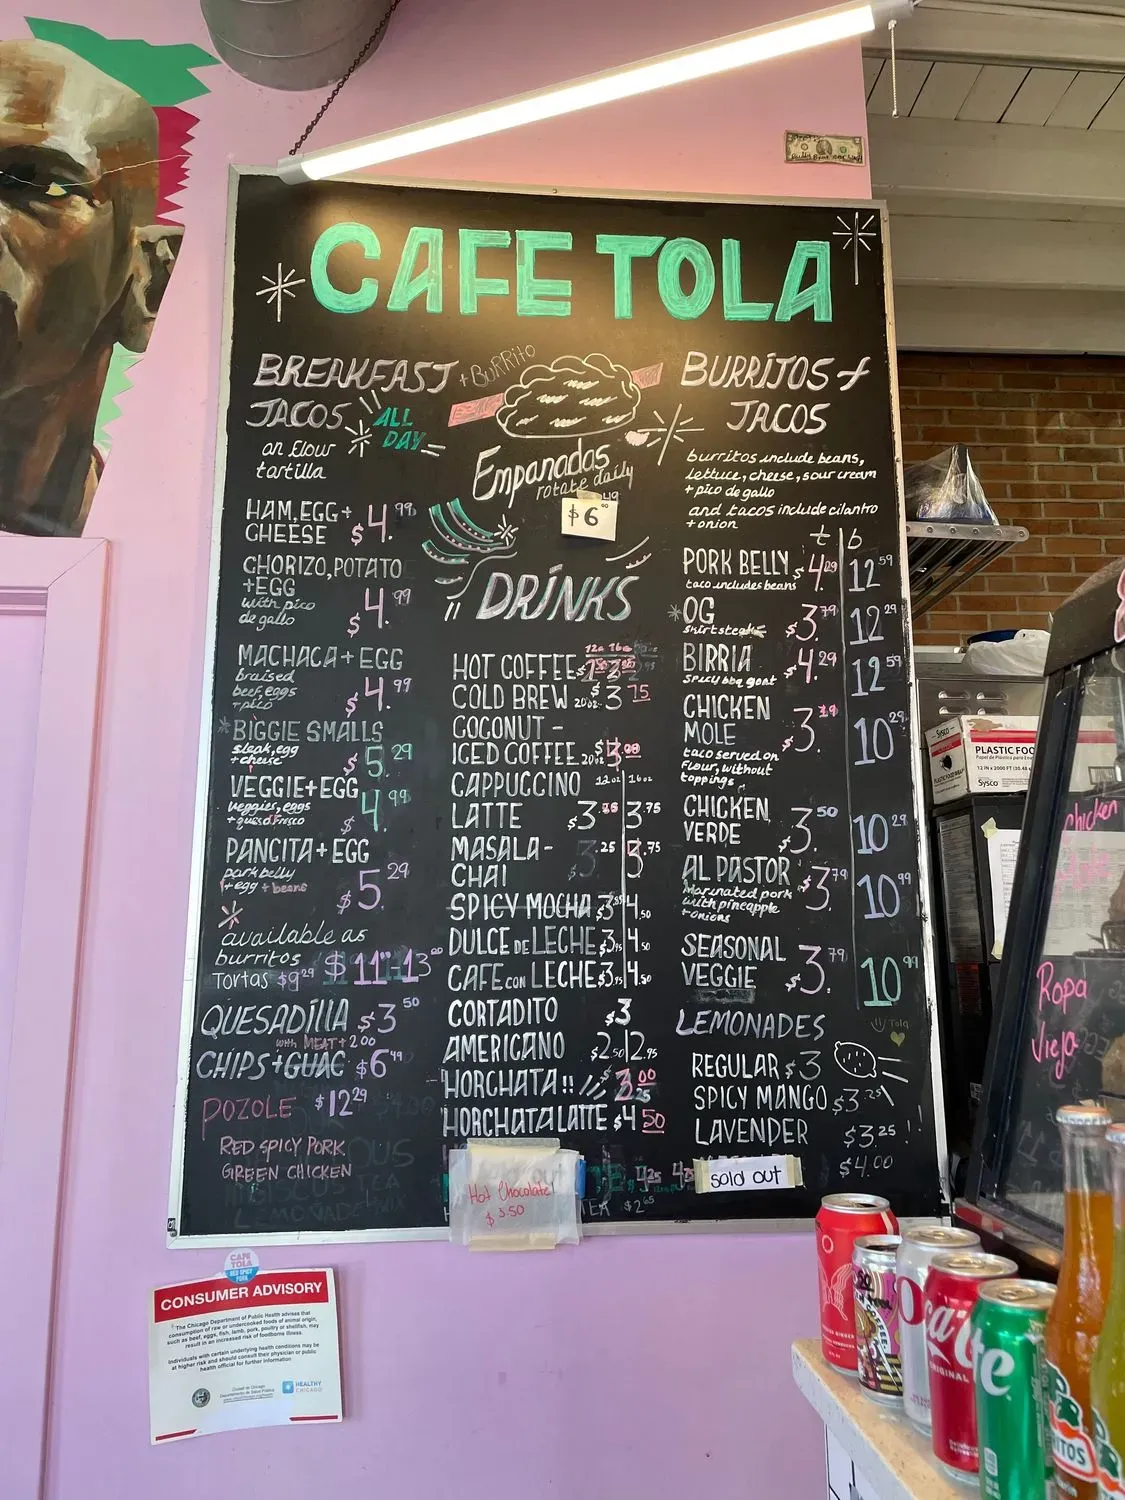 CAFE TOLA
BREAKFAST + BURRITO
TACOS
ALL
DAY
on flour
tortilla
HAM, EGG +
CHEESE $4.99
CHORIZO, POTATO
+ EGG
with pico
de gallo $4.99
MACHACA + EGG
braised
beef, eggs
+ pico $4.99
*BIGGIE SMALLS
steak, egg
+ cheese $5.29
VEGGIE + EGG
veggies, eggs
+ queso fresco $4.99
PANCITA + EGG
pork belly
+ egg + beans $5.29
*
available as
burritos
Tortas $9.29 $11
QUESADILLA $3.50
with MEAT + 2.00
CHIPS + GUAC $6.49
POZOLE $12.29
RED SPICY PORK
GREEN CHICKEN
Empanadas
rotate daily
$6
DRINKS
12oz 16oz
HOT COFFEE
COLD BREW 20oz $3.75
COCONUT -
ICED COFFEE 20oz
CAPPUCCINO 12oz 16oz
LATTE $3 3.75
MASALA - 3.25 3.75
CHAI
SPICY MOCHA $3 4.50
DULCE DE LECHE $3.75 4.50
CAFE CON LECHE $3.75 4.50
CORTADITO $3
AMERICANO $2.50 2.95
HORCHATA!!
HORCHATA LATTE $4.50
Hot Chocolate
$3.50
4.25
TEA $2.65
BURRITOS +
TACOS
burritos include beans,
lettuce, cheese, sour cream
+ pico de gallo
and tacos include cilantro
+ onion
t b
PORK BELLY $4.29 12.59
taco includes beans
*OG $3.79 12.29
skirt steak
BIRRIA $4.29 12.59
spicy bbq goat
CHICKEN
MOLE $3.79 10.29
taco served on
flour, without
toppings
CHICKEN
VERDE $3.50 10.29
AL PASTOR $3.79 10.99
Marinated pork
with pineapple
+ onions
SEASONAL
VEGGIE $3.79 10.99
LEMONADES
REGULAR $3
SPICY MANGO $3.25
LAVENDER $3.25
$4.00
sold out
Tola
CAFE
TOLA
RED SPICY
PORK
CONSUMER ADVISORY
The Chicago Department of Public Health advises that
consumption of raw or undercooked foods of animal origin,
such as beef, eggs, fish, lamb, pork, poultry or shellfish, may
result in an increased risk of foodborne illness.
Individuals with certain underlying health conditions may be
at higher risk and should consult their physician or public
health official for further information
HEALTHY
CHICAGO
Sysco
PLASTIC FOO
Sysco
chicken
Ropa
Vieja
ORIGINAL